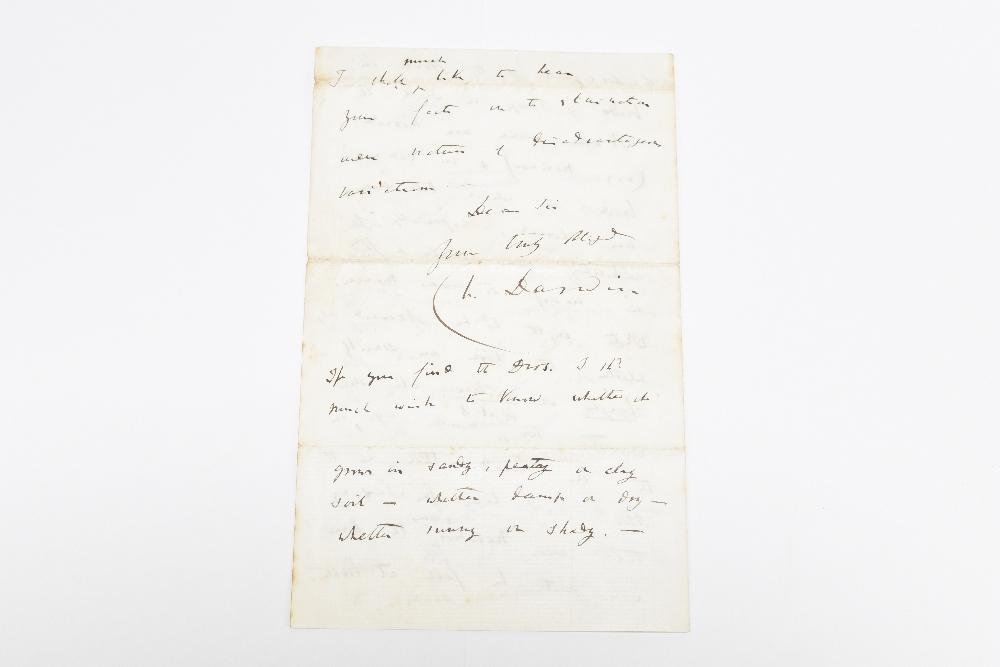 much
I shd like to hear
your facts on the elimination
even nature of disadvantageous
variations.—
Dear Sir
Yours truly obliged
Ch. Darwin
If you find the Dros. I shd
much wish to know whether it
grows in sandy, peaty or clay
soil — whether damp or dry —
whether sunny or shady. —